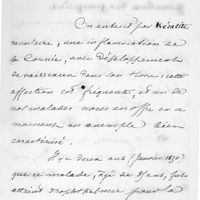 On entend par Kératite
vasculaire, une inflammation de
la Cornée, avec développements
de vaisseaux dans son tissu; cette
affection est fréquente, et un de
nos malades nous en offre en ce
moment un exemple bien
caractérisé.
Il y a deux ans (Janvier 1850)
que ce malade, âgé de ans, fut
atteint d'ophthalmie pour la